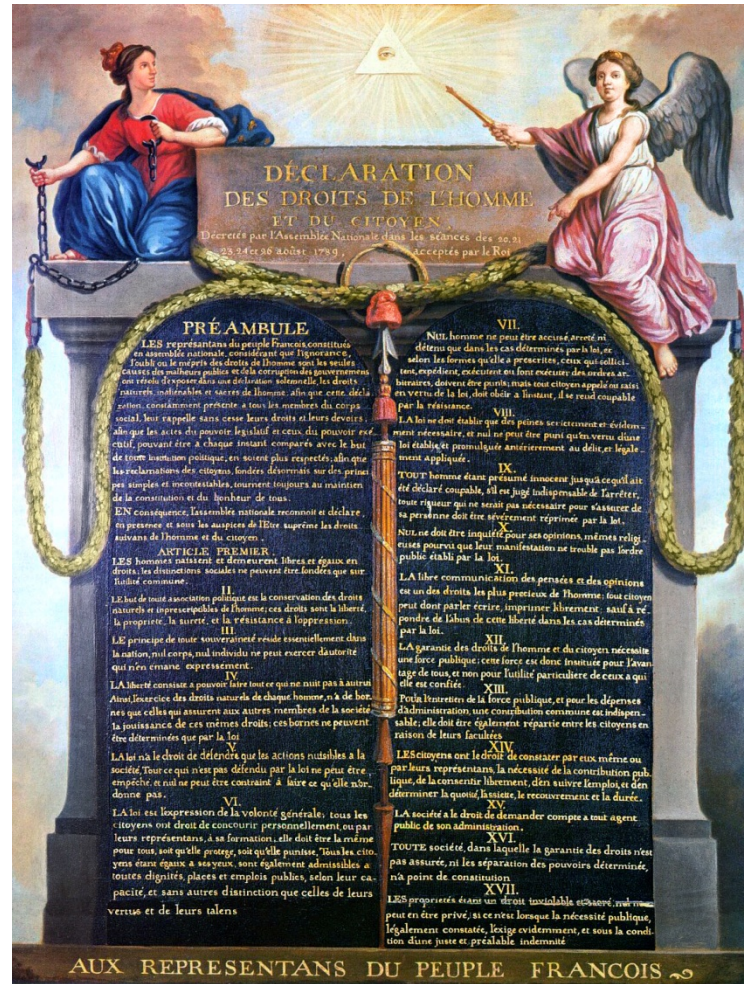 DÉCLARATION
DES DROITS DE L'HOMME
ET DU CITOYEN,
Décretés par l'Assemblée Nationale dans les séances des 20, 21
23, 24 et 26 août 1789, acceptés par le Roi
PRÉAMBULE
LES représentans du peuple Francois, constitués
en assemblée nationale, considérant que l'ignorance,
l'oubli ou le mépris des droits de l'homme sont les seules
causes des malheurs publics et de la corruption des gouvernemens
ont résolu d'exposer dans une déclaration solemnelle, les droits
naturels, inaliénables et sacrés de l'homme; afin que cette décla
ration, constamment présente a tous les membres du corps
social, leur rappelle sans cesse leurs droits et leurs devoirs;
afin que les actes du pouvoir législatif et ceux du pouvoir exé
cutif, pouvant être a chaque instant comparés avec le but
de toute institution politique, en soient plus respectés; afin que
les reclamations des citoyens, fondées désormais sur des princi
pes simples et incontestables, tournent toujours au maintien
de la constitution et du bonheur de tous.
EN conséquence, l'assemblée nationale reconnoit et déclare,
en presence et sous les auspices de l'Etre suprême les droits
suivans de l'homme et du citoyen.
ARTICLE PREMIER.
LES hommes naissent et demeurent libres et égaux en
droits; les distinctions sociales ne peuvent être fondées que sur
l'utilité commune.
II.
LE but de toute association politique est la conservation des droits
naturels et inprescriptibles de l'homme; ces droits sont la liberté,
la propriété, la sureté, et la résistance à l'oppression.
III.
LE principe de toute souveraineté réside essentiellement dans
la nation, nul corps, nul individu ne peut exercer d'autorité
qui n'en émane expressement.
IV.
LA liberté consiste a pouvoir faire tout ce qui ne nuit pas à autrui
Ainsi, l'exercice des droits naturels de chaque homme, n'a de bor-
nes que celles qui assurent aux autres membres de la société
la jouissance de ces mêmes droits; ces bornes ne peuvent
être déterminées que par la loi
V.
LA loi n'a le droit de défendre que les actions nuisibles à la
société. Tout ce qui n'est pas défendu par la loi ne peut être
empêché, et nul ne peut être contraint à faire ce qu'elle n'or-
donne pas.
VI.
LA loi est l'expression de la volonté générale; tous les
citoyens ont droit de concourir personnellement, ou par
leurs représentans, à sa formation; elle doit être la même
pour tous, soit qu'elle protege, soit qu'elle punisse, Tous les cito-
yens étant égaux a ses yeux, sont également admissibles a
toutes dignités, places et emplois publics, selon leur ca-
pacité, et sans autres distinction que celles de leurs
vertus et de leurs talens
VII.
NUL homme ne peut être accusé, arreté ni
détenu que dans les cas déterminés par la loi, et
selon les formes qu'elle a prescrites, ceux qui sollici-
tent, expédient, exécutent ou font exécuter des ordres ar-
bitraires, doivent être punis; mais tout citoyen appelé ou saisi
en vertu de la loi, doit obéir a l'instant, il se rend coupable
par la résistance.
VIII.
LA loi ne doit établir que des peines strictement et évidem-
ment nécessaire, et nul ne peut être puni qu'en vertu d'une
loi établie, et promulguée antérierement au délit, et légale-
ment appliquée.
IX.
TOUT homme étant présumé innocent jusqu'à ce qu'il ait
été déclaré coupable, s'il est jugé indispensable de l'arrêter,
toute rigueur qui ne serait pas nécessaire pour s'assurer de
sa personne doit être sévèrement réprimée par la loi.
X.
NUL ne doit être inquiété pour ses opinions, mêmes religi-
euses pourvu que leur manifestation ne trouble pas l'ordre
public établi par la loi.
XI.
LA libre communication des pensées et des opinions
est un des droits les plus precieux de l'homme; tout citoyen
peut dont parler écrire, imprimer librement: sauf à ré-
pondre de l'abus de cette liberté dans les cas déterminés
par la loi.
XII.
LA garantie des droits de l'homme et du citoyen nécessite
une force publique; cette force est donc instituée pour l'avan-
tage de tous, et non pour l'utilité particuliere de ceux a qui
elle est confiée.
XIII.
POUR l'entretien de la force publique, et pour les dépenses
d'administration, une contribution commune est indispen-
sable; elle doit être également répartie entre les citoyens en
raison de leurs facultées
XIV.
LES citoyens ont le droit de constater par eux même ou
par leurs représentans, la nécessité de la contribution pub-
lique, de la consentir librement, d'en suivre l'emploi, et d'en
déterminer la quotité, l'assiette, le recouvrement et la durée.
XV.
LA société a le droit de demander compte a tout agent
public de son administration.
XVI.
TOUTE société, dans laquelle la garantie des droits n'est
pas assurée, ni les séparation des pouvoirs déterminée,
n'a point de constitution
XVII.
LES proprietés étans un droit inviolable et sacré, nul ne
peut en être privé, si ce n'est lorsque la nécessité publique,
légalement constatée, l'exige evidemment, et sous la condi-
tion d'une juste et préalable indemnité
AUX REPRESENTANS DU PEUPLE FRANCOIS